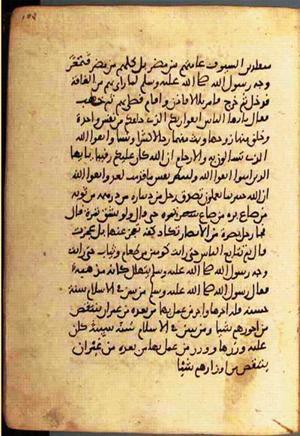 متقلدي السيوف عامتهم من مضر بل كلهم من مضر فتمعر
وجه رسول الله صلى الله عليه وسلم لما راى بهم من الفاقة
فدخل ثم خرج فامر بلالا فاذن واقام فصلى ثم خطب
فقال يايها الناس اتقوا ربكم الذي خلقكم من نفس واحدة
وخلق منها زوجها وبث منهما رجالا كثيرا ونسا واتقوا الله
الذي تسالون به والارحام ان الله كان عليكم رقيبا يايها
الذين امنوا اتقوا الله ولتنظر نفس ما قدمت لغد واتقوا الله
ان الله خبير بما تعملون تصدق رجل من ديناره من درهمه من ثوبه
من صاع بره من صاع تمره حتى قال ولو بشق تمرة قال
فجا رجل من الانصار بصرة كادت كفه تعجز عنها بل عجزت
قال ثم تتابع الناس حتى رايت كومين من طعام وثياب حتى رايت
وجه رسول الله صلى الله عليه وسلم يتهلل كانه مذهبة
فقال رسول الله صلى الله عليه وسلم من سن في الاسلام سنة
حسنة فله اجرها واجر من عمل بها من بعده من غير ان ينقص
من اجورهم شيا ومن سن في الاسلام سنة سيئة كان
عليه وزرها ووزر من عمل بها من بعده من غير ان
ينقص من اوزارهم شيا